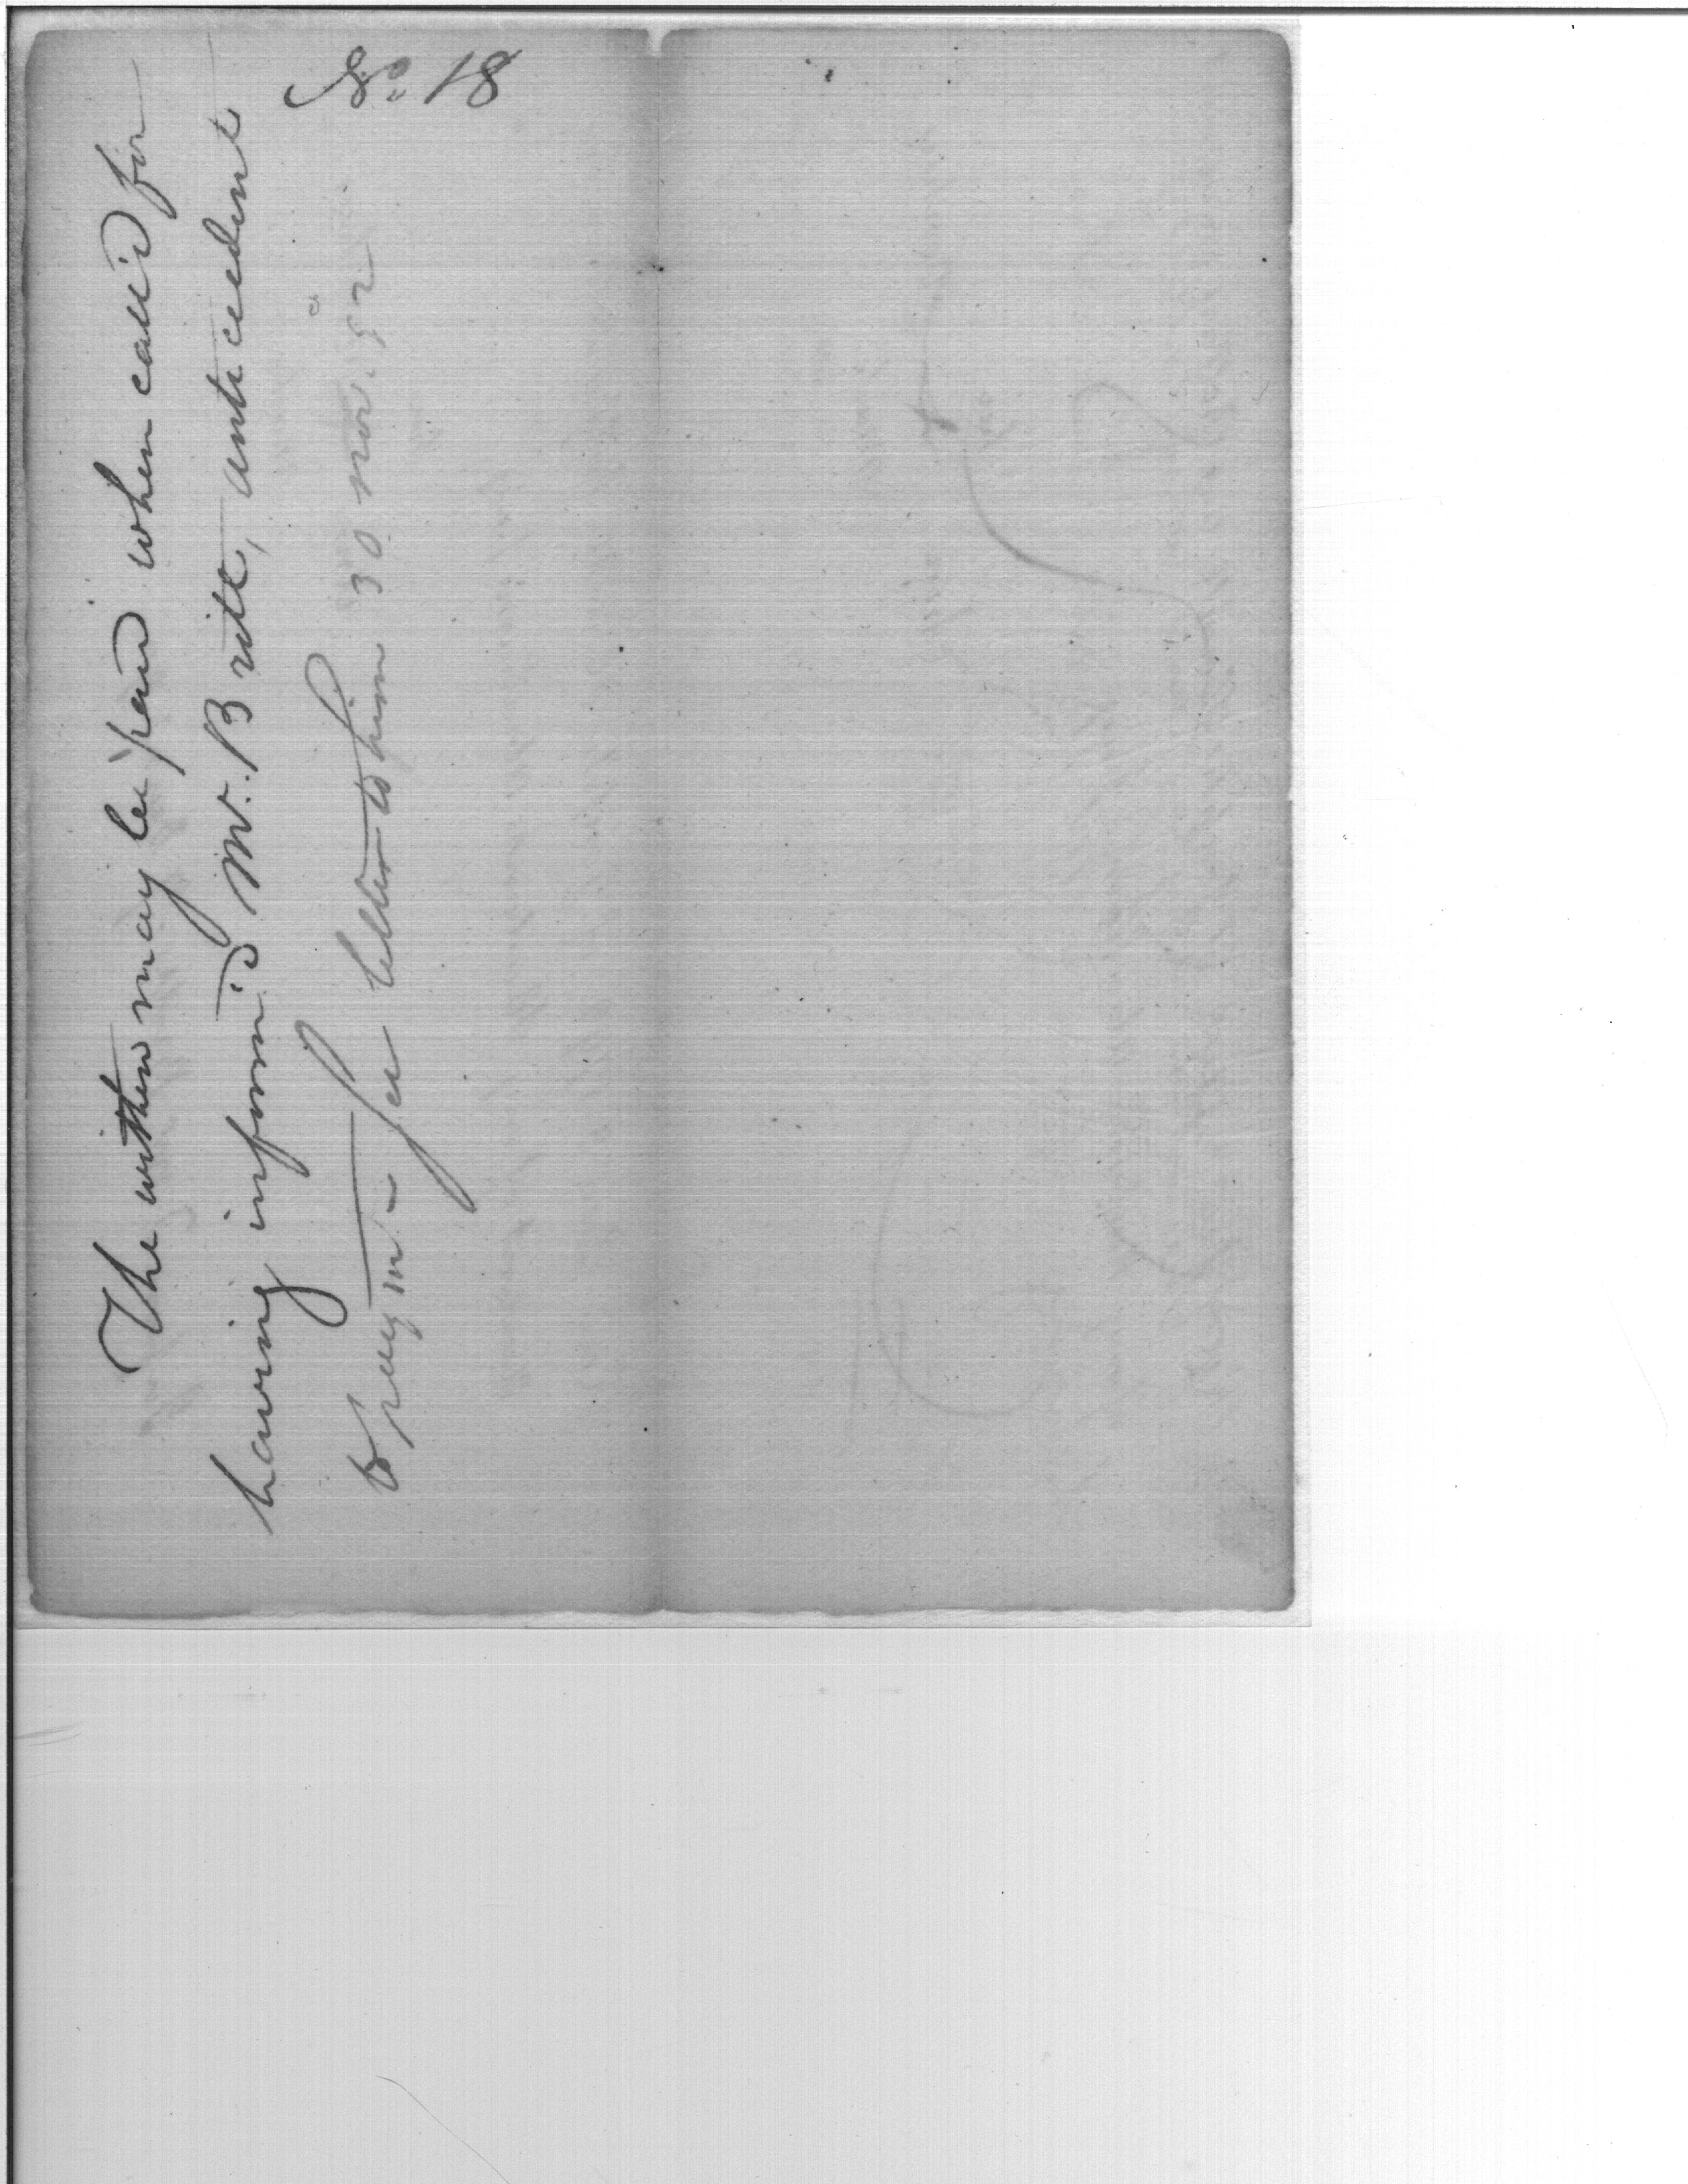 No. 18
The within may be paid when call'd for
having inform'd Mr. Britt, antecedent
to paymt. — See letter to him 30 Nov. 92